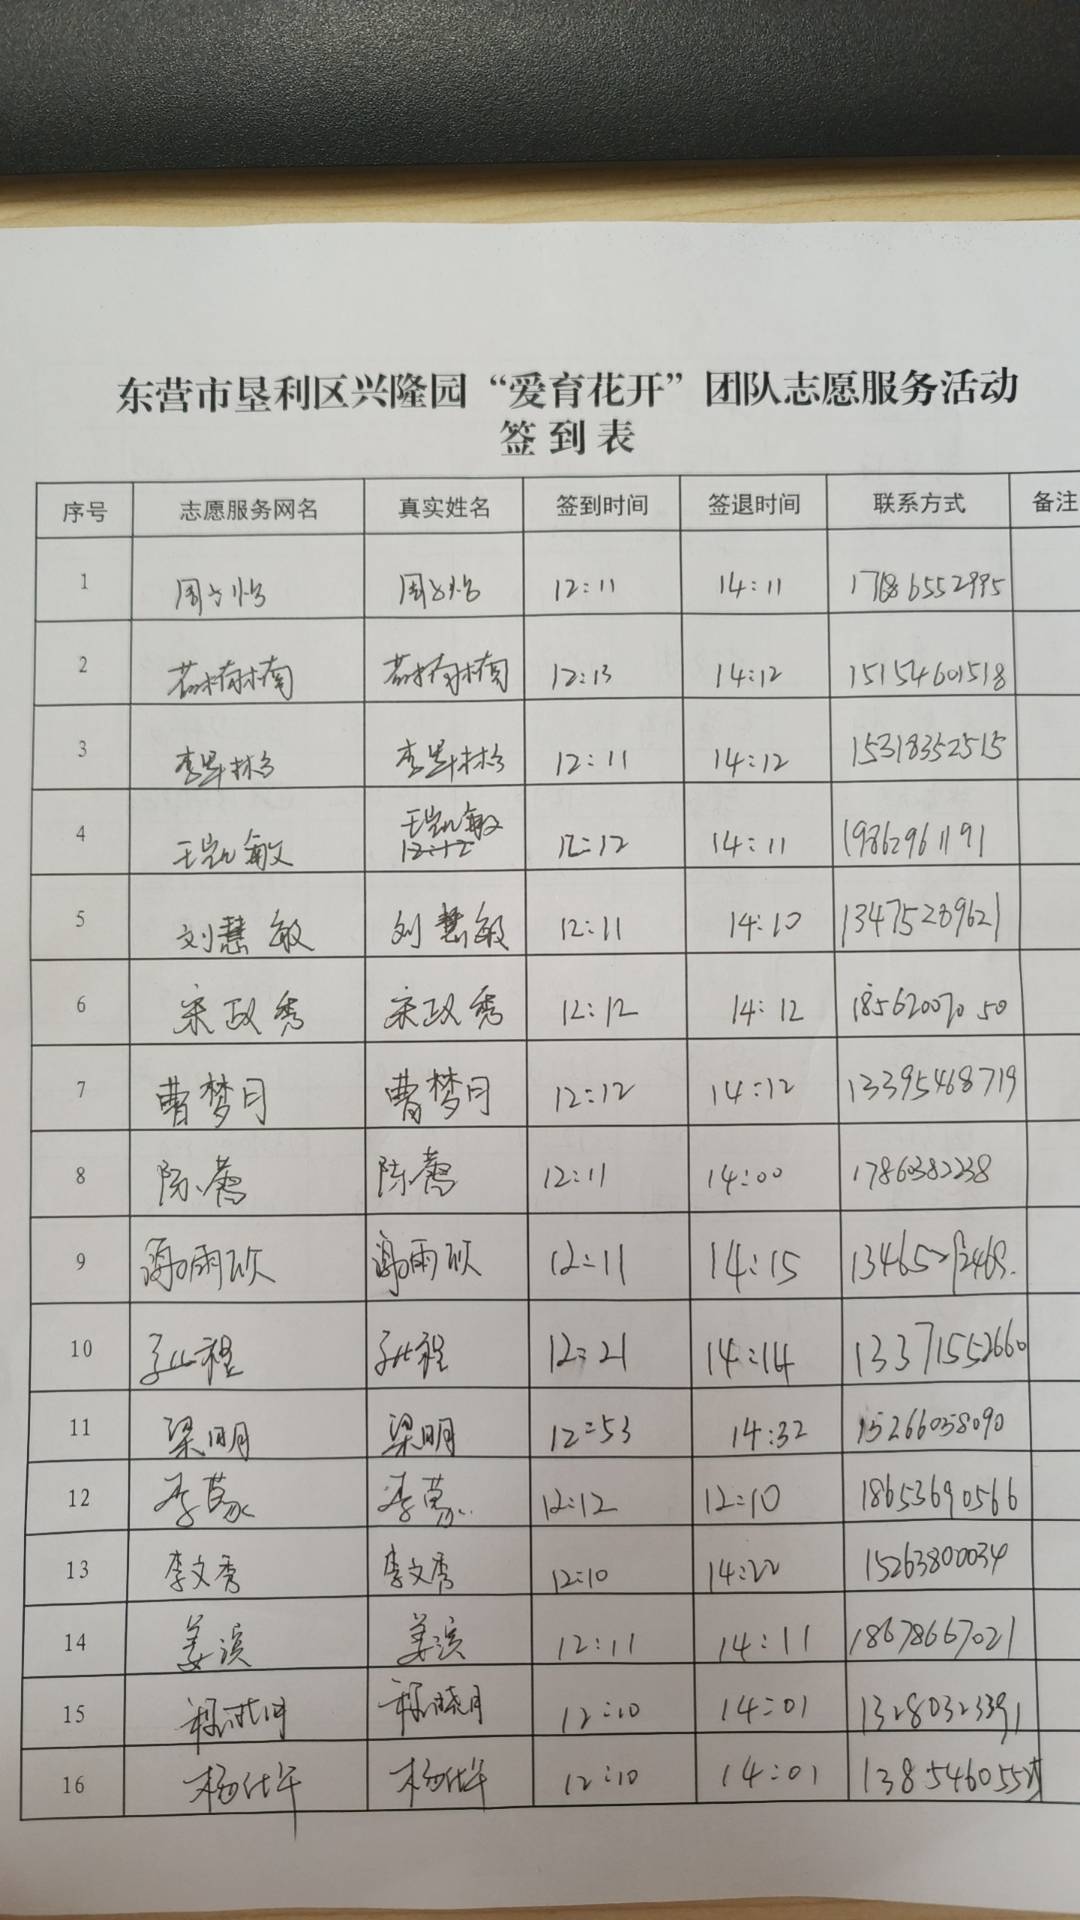 东营市垦利区兴隆园“爱育花开”团队志愿服务活动
签到表
序号 志愿服务网名 真实姓名 签到时间 签退时间 联系方式 备注
1 周子怡 周子怡 12:11 14:11
2 12:13 14:12 15154601518
3 12:11 14:12 15318352515
4 王凯敏 王凯敏 12:12 12:12 14:11 19862961191
5 刘慧敏 刘慧敏 12:11 14:10 13475289621
6 宋政秀 宋政秀 12:12 14:12 18562007050
7 曹梦月 曹梦月 12:12 14:12 13395468719
8 12:11 14:00 17860382238
9 谢雨欣 谢雨欣 12:11 14:15
10 12:21 14:14 13371552660
11 梁明 梁明 12:53 14:32 15266058090
12 12:12 12:10 18653690566
13 李文秀 李文秀 12:10 14:22 15263800034
14 姜滨 姜滨 12:11 14:11 18678667021
15 程晓月 12:10 14:01 13280323391
16 12:10 14:01